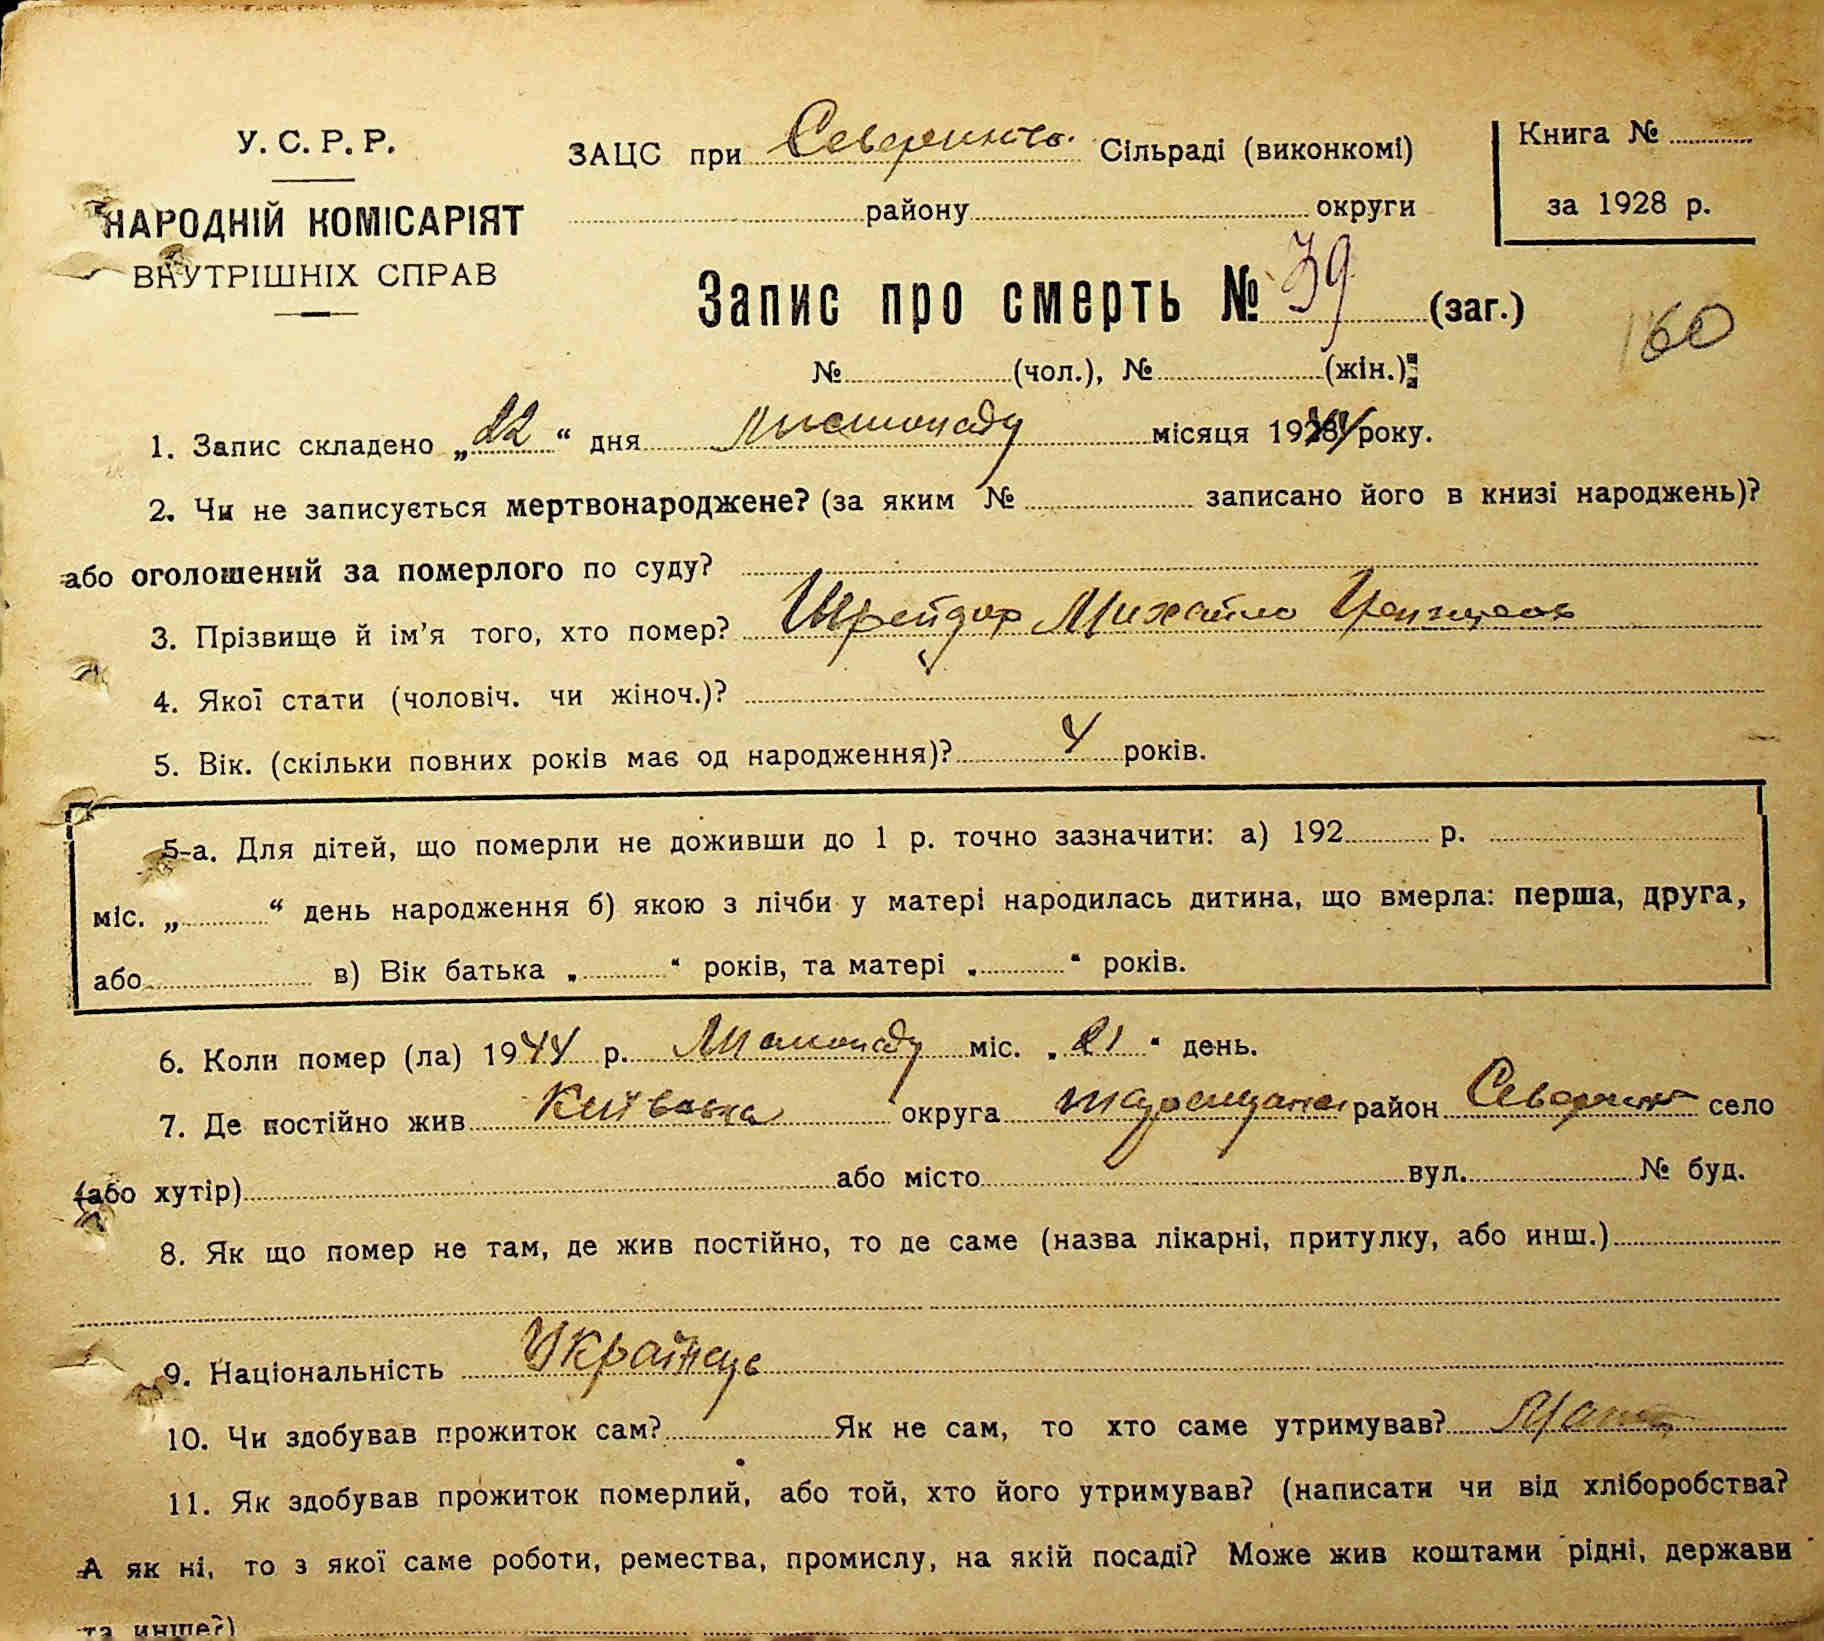 У. С. Р. Р.
НАРОДНІЙ КОМІСАРІЯТ
ВНУТРІШНІХ СПРАВ
ЗАЦС при Сільраді (виконкомі)
району округи
Книга №
за 1928 р.
Запис про смерть № 39 (заг.)
160
№ (чол.), № (жін.)
1. Запис складено „22“ дня листопаду місяця 1944 року.
2. Чи не записується мертвонароджене? (за яким № записано його в книзі народжень)?
або оголошений за померлого по суду?
3. Прізвище й ім’я того, хто помер? Шрейдор Михайло
4. Якої стати (чоловіч. чи жіноч.)?
5. Вік. (скільки повних років має од народження)? 4 років.
5-а. Для дітей, що померли не доживши до 1 р. точно зазначити: а) 192 р.
міс. „ “ день народження б) якою з лічби у матері народилась дитина, що вмерла: перша, друга,
або в) Вік батька „ “ років, та матері „ “ років.
6. Коли помер (ла) 1944 р. Листопаду міс. „21“ день.
7. Де постійно жив Київська округа район село
(або хутір) або місто вул. № буд.
8. Як що помер не там, де жив постійно, то де саме (назва лікарні, притулку, або инш.)
9. Національність Українець
10. Чи здобував прожиток сам? Як не сам, то хто саме утримував? Мати
11. Як здобував прожиток померлий, або той, хто його утримував? (написати чи від хліборобства?
А як ні, то з якої саме роботи, ремества, промислу, на якій посаді? Може жив коштами рідні, держави
та инше?)